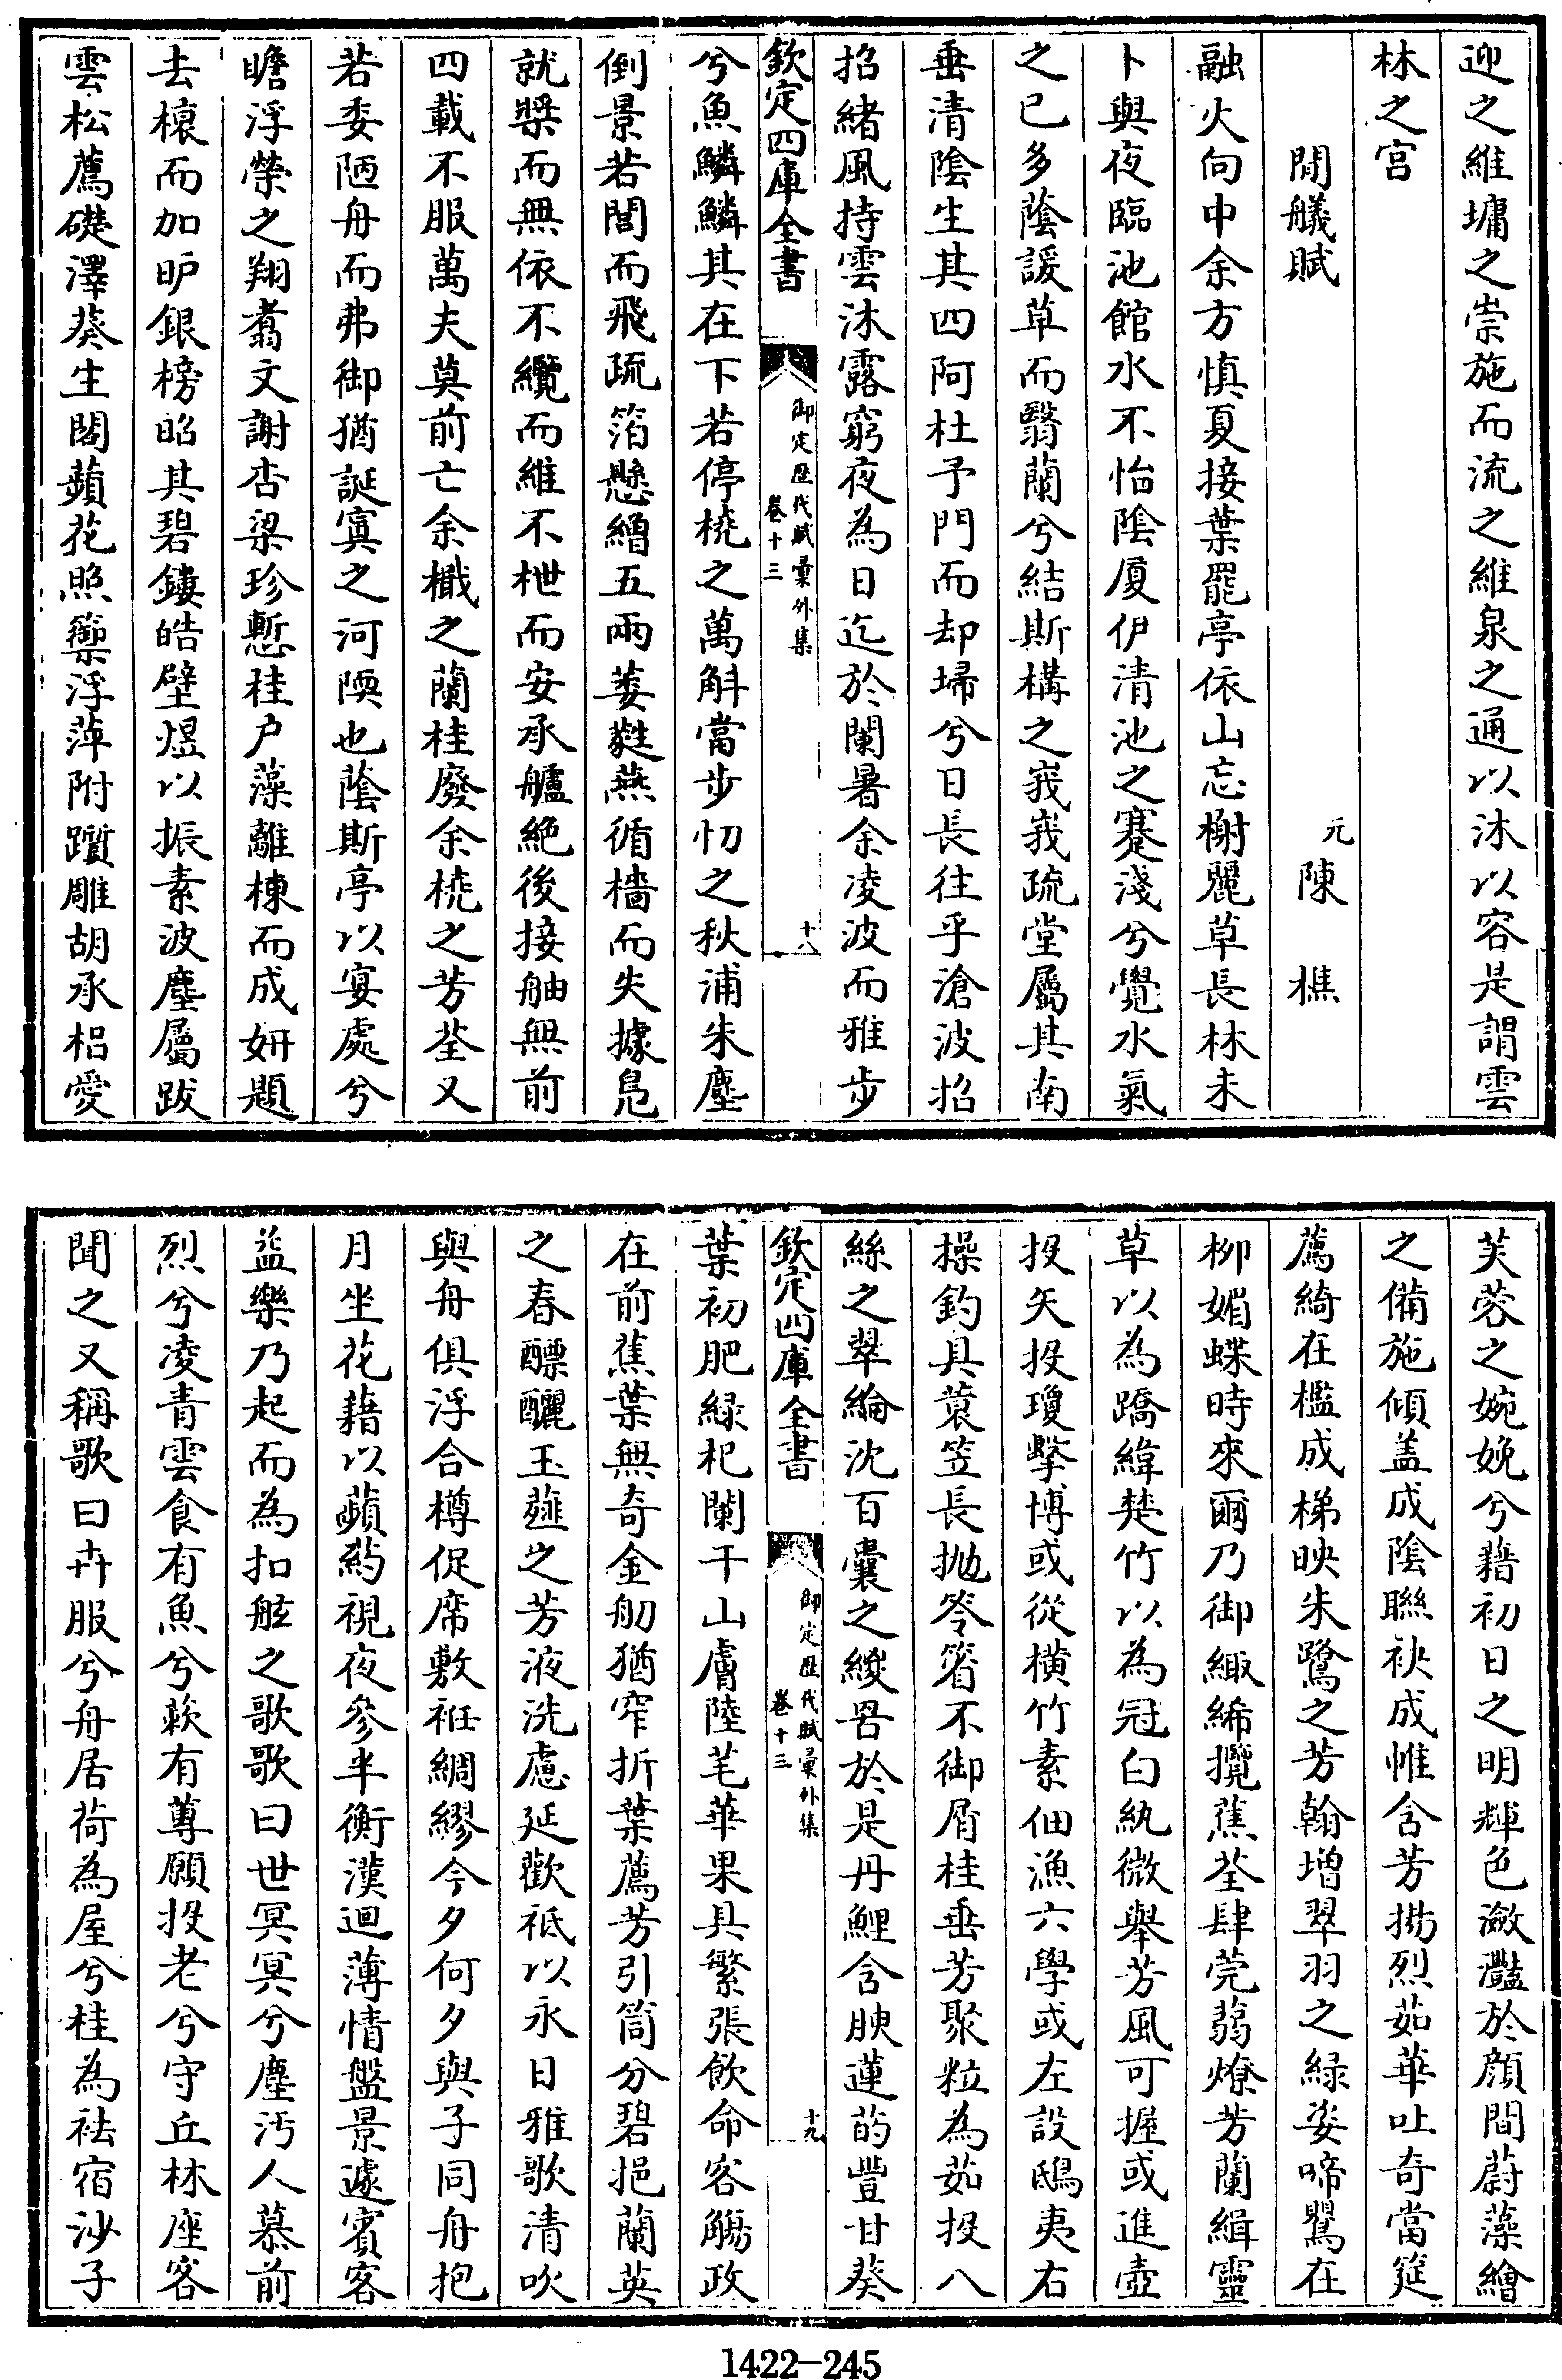 迎之維墉之崇施而流之維泉之通以沐以容是謂雲
林之宫
閒艤賦
元陳樵
融火向中余方慎夏接葉罷亭依山忘榭麗草長林未
卜與夜臨池館水不怡陰厦伊清池之蹇淺兮覺水氣
之已多蔭諼草而翳蘭兮結斯構之峩峩疏堂屬其南
垂清陰生其四阿杜予門而却埽兮日長往乎滄波招
招緒風持雲沐露窮夜為日迄於闌暑余凌波而雅步
欽定四庫全書
御定歷代賦彙外集
卷十三
十八
兮魚鱗鱗其在下若停橈之萬斛當步忉之秋浦朱塵
倒景若閭而飛疏箔懸繒五兩蔞蕤燕循檣而失據鳧
就槳而無依不纜而維不枻而安承艫絶後接舳無前
四載不服萬夫莫前亡余檝之蘭桂廢余橈之芳荃又
若委陋舟而弗御猶誕寘之河隩也蔭斯亭以宴處兮
瞻浮榮之翔翥文謝杏梁珍慙桂户藻離棟而成妍題
去榱而加昈銀榜昭其碧鏤皓壁煜以振素波塵屬跋
雲松薦礎澤葵生閣蘋花照籞浮萍附躓雕胡承梠愛
芙蓉之婉娩兮藉初日之明輝色瀲灩於顔間蔚藻繪
之備施傾盖成陰聯袂成帷含芳揚烈茹華吐奇當筵
薦綺在檻成梯映朱鷺之芳翰增翠羽之緑姿啼鸎在
柳媚蝶時來爾乃御緅絺攬蕉荃肆莞蒻燎芳蘭緝靈
草以為蹻緯楚竹以為冠白紈微舉芳風可握或進壺
投矢投瓊擊博或從横竹素佃漁六學或左設鴟夷右
操釣具蓑笠長拋笭箵不御屑桂垂芳聚粒為茹投八
絲之翠綸沈百囊之緵罟於是丹鯉含腴蓮菂豐甘葵
欽定四庫全書
御定歷代賦彙外集
卷十三
十九
葉初肥緑杞闌干山膚陸芼華果具繁張飲命客觴政
在前蕉葉無奇金舠猶窄折葉薦芳引筒分碧挹蘭英
之春醥釃玉薤之芳液洗慮延歡祗以永日雅歌清吹
與舟俱浮合樽促席敷袵綢繆今夕何夕與子同舟抱
月坐花藉以蘋葯視夜參半衡漢迴薄情盤景遽賓客
益樂乃起而為扣舷之歌歌曰世冥冥兮塵汚人慕前
烈兮凌青雲食有魚兮蔌有蓴願投老兮守丘林座客
聞之又稱歌曰卉服兮舟居荷為屋兮桂為祛宿沙子
1422—245